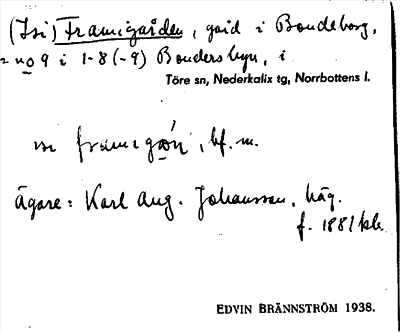 (Isi) Framigården, gård i Bondeborg,
= no 9 i 1-8 (-9) Bondersbyn, i
Töre sn, Nederkalix tg, Norrbottens l.
isi framigǻn, bf. m.
ägare: Karl Aug. Johansson, häg.
f. 1881
EDVIN BRÄNNSTRÖM 1938.